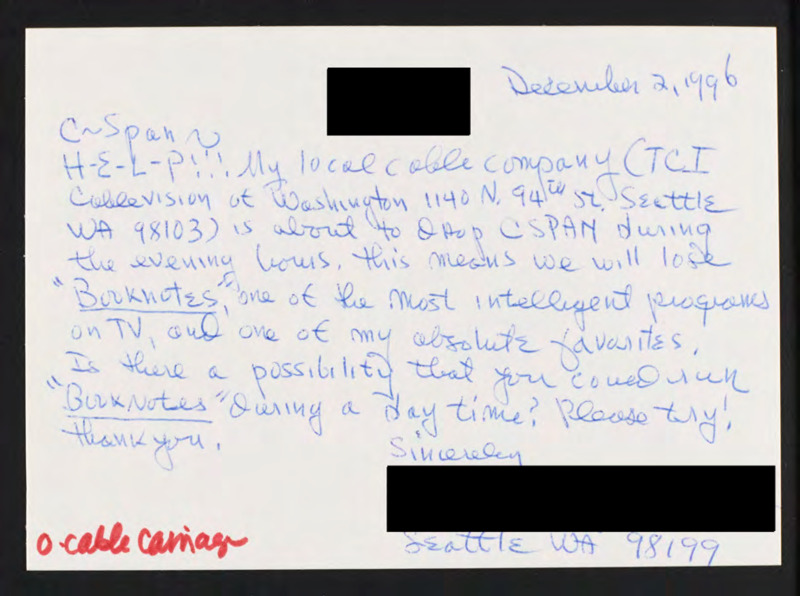 December 2, 1996
C~Span~
H-E-L-P!!! My local cable company (TCI
Cablevision of Washington 1140 N. 94th St. Seattle
WA 98103) is about to drop CSPAN during
the evening hours. This means we will lose
"Booknotes", one of the most intelligent programs
on TV, and one of my absolute favorites.
Is there a possibility that you could run
"Booknotes" during a day time? Please try!
Thank you.
Sincerely
Seattle WA 98199
o-cable carriage